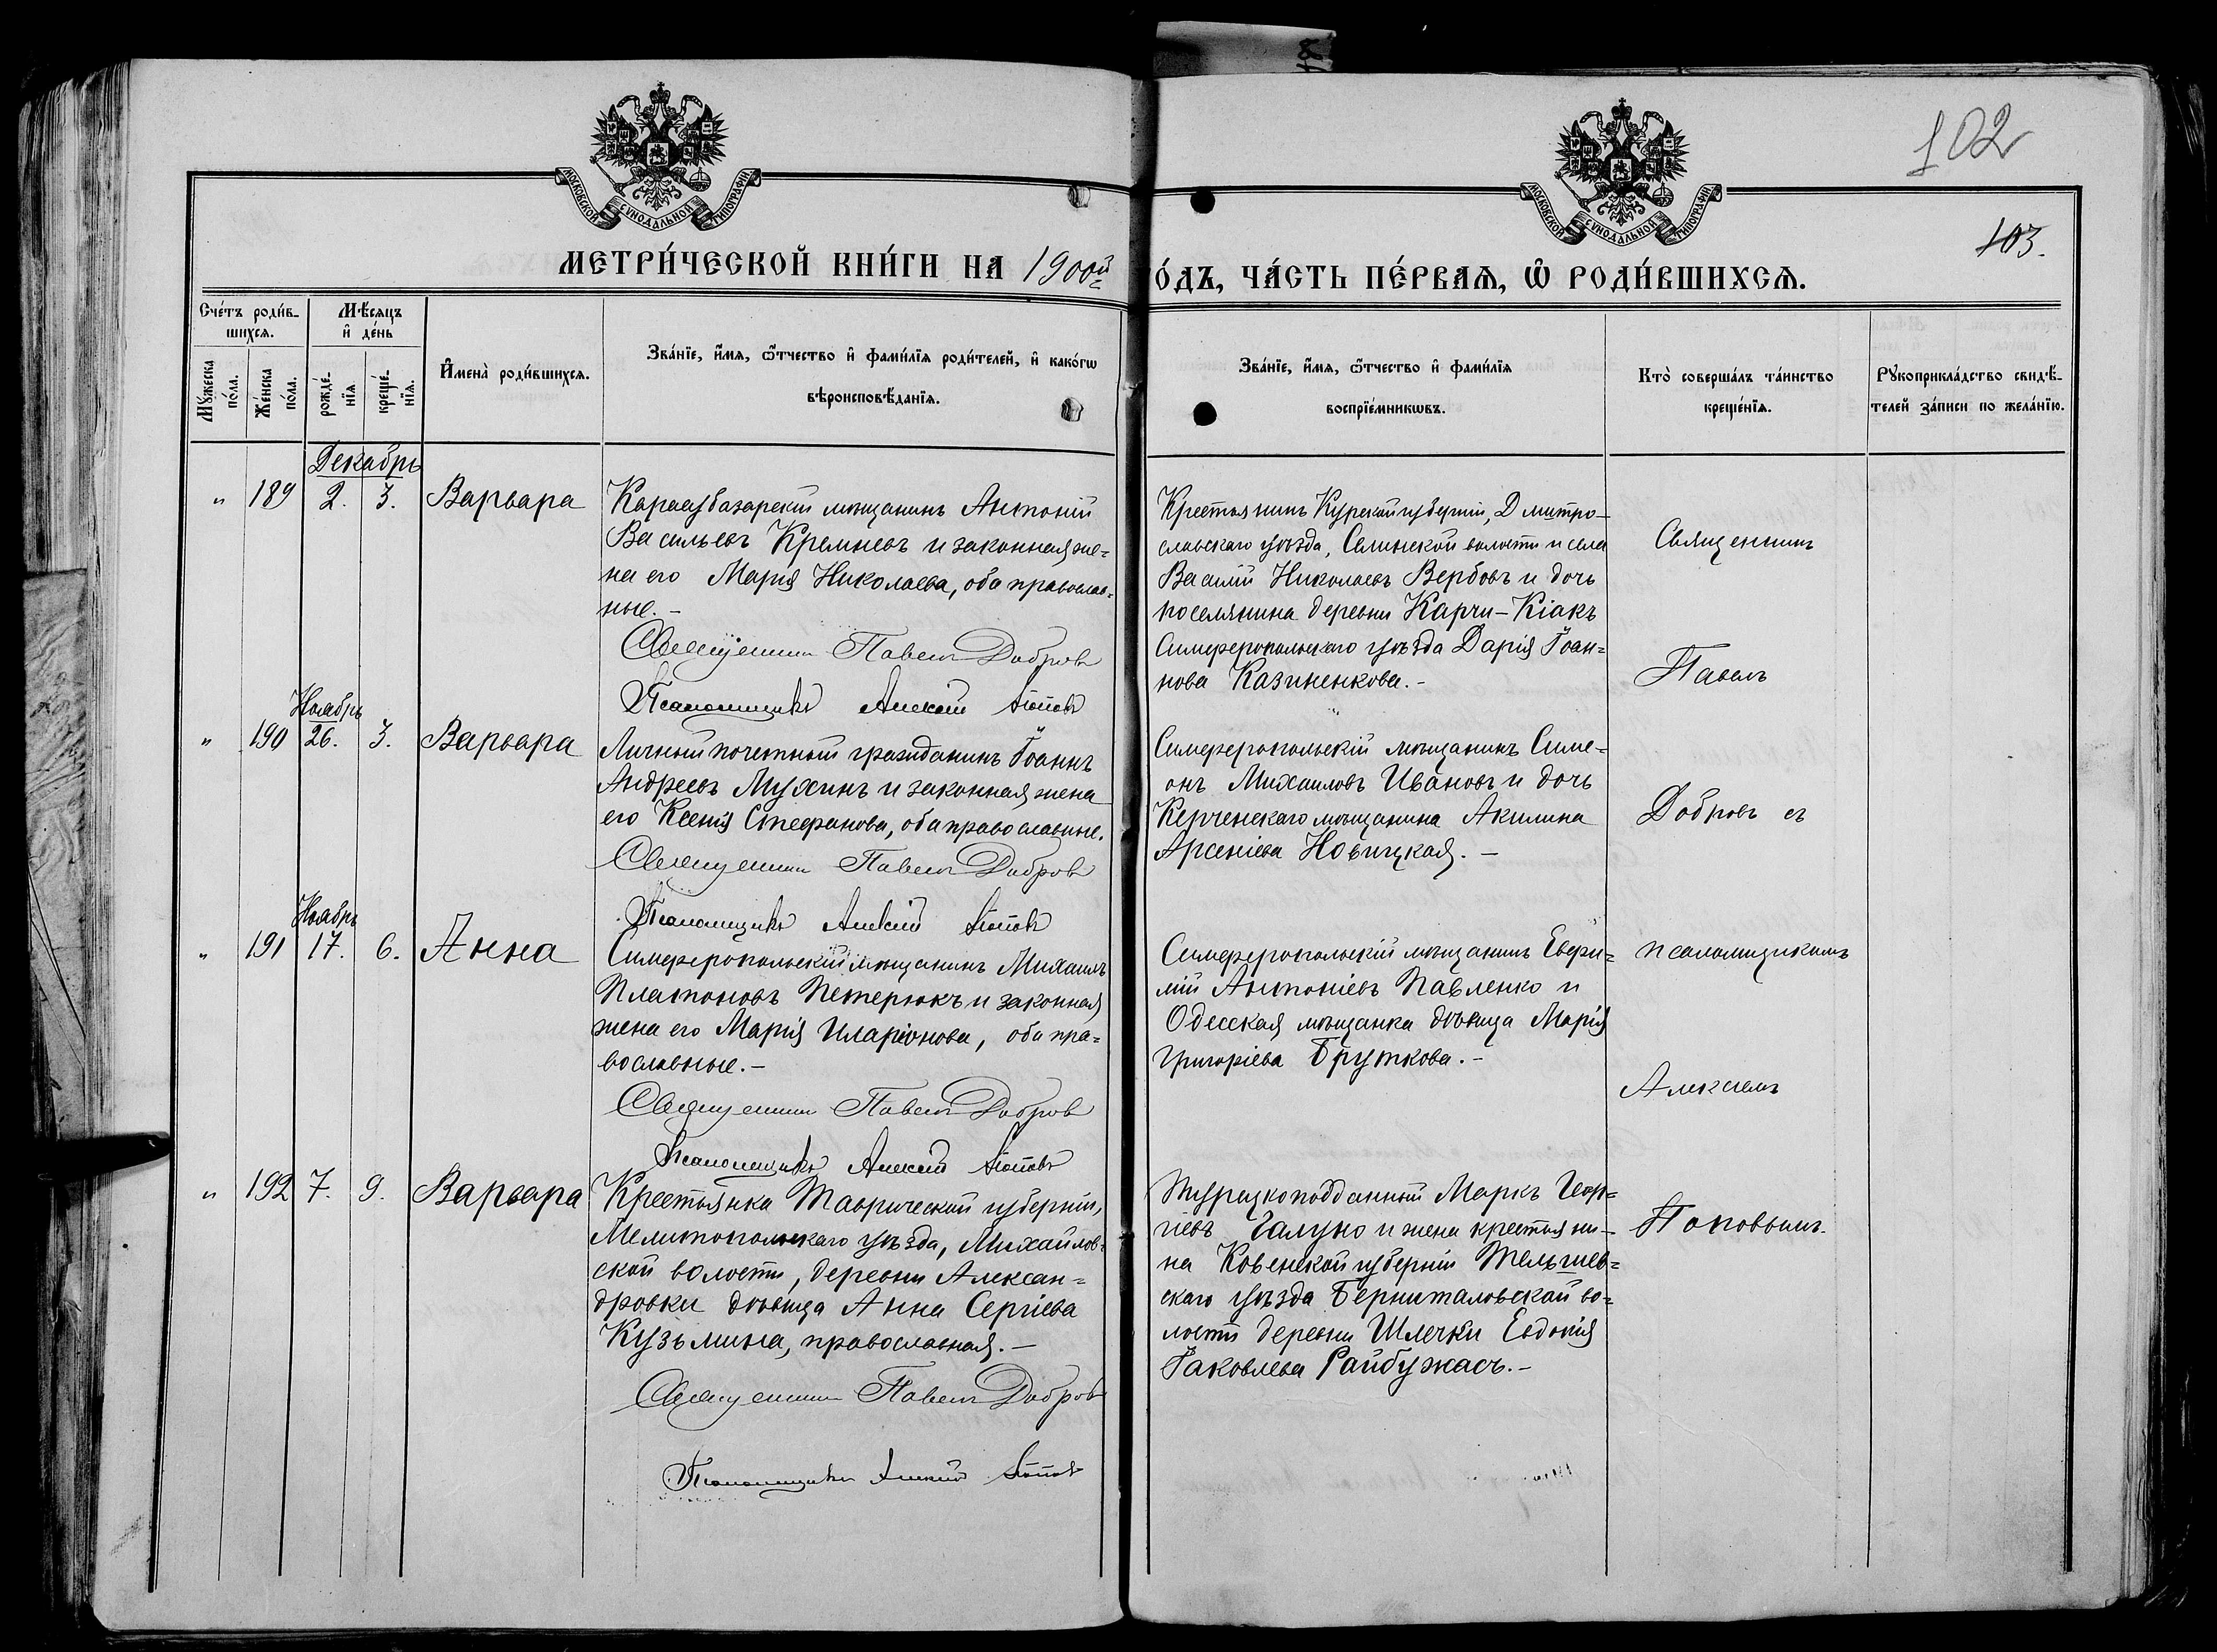 102
103.
МОСКОВСКОЙ СѴНОДАЛЬНОЙ ТИПОГРАФІИ
МОСКОВСКОЙ СѴНОДАЛЬНОЙ ТИПОГРАФІИ
МЕТРИ́ЧЕСКОЙ КНИ́ГИ НА 1900й
О́ДЪ, ЧА́СТЬ ПЕ́РВАѦ, Ѡ҆ РОДИ́ВШИХСѦ.
Сче́тъ роди́в-
шихсѧ.
Мꙋжеска
по́ла.
Же́нска
по́ла.
Мѣ́сяцъ
и҆ де́нь
рожде́-
нїѧ.
креще́-
нїѧ.
И҆мена̀ роди́вшихсѧ.
Зва́нїе, и҆́мѧ, ѻ҆́тчество и҆ фами́лїѧ роди́телей, и҆ како́гѡ
вѣроисповѣ́данїѧ.
Зва́нїе, и҆́мѧ, ѻ҆́тчество и҆ фами́лїѧ
воспрїе́мникѡвъ.
Кто̀ соверша́лъ та́инство
креще́нїѧ.
Рꙋкоприкла́дство свидѣ́-
телей за́писи по жела́нїю.
Декабрь
" 189 2. 3. Варвара
Карасубазарскій мѣщанинъ Антоній
Васильевъ Кремневъ и законная же-
на его Марія Николаева, оба православ-
ные.-
Священникъ Павелъ Добровъ
Псаломщикъ Алексій Поповъ
Крестьянинъ Курской губерніи, Дмитро-
славскаго уѣзда, Селинской волости и села
Василій Николаевъ Вербовъ и дочь
поселянина деревни Карчи-Кіакъ
Симферопольскаго уѣзда Дарія Іоан-
нова Казиненкова.-
Ноябрь
" 190 26. 3. Варвара
Личный почетный гражданинъ Іоаннъ
Андреевъ Мухинъ и законная жена
его Ксенія Стефанова, оба православные.
Священникъ Павелъ Добровъ
Псаломщикъ Алексій Поповъ
Симферопольскій мѣщанинъ Симе-
онъ Михаиловъ Ивановъ и дочь
Керченскаго мѣщанина Акилина
Арсеніева Новицкая.-
Ноябрь
" 191 17. 6. Анна
Симферопольскій мѣщанинъ Михаилъ
Платоновъ Петерюкъ и законная
жена его Марія Иларіонова, оба пра-
вославные.-
Священникъ Павелъ Добровъ
Псаломщикъ Алексій Поповъ
Симферопольскій мѣщанинъ Евфи-
мій Антоніевъ Павленко и
Одесская мѣщанка дѣвица Марія
Григоріева Бруткова.-
" 192 7. 9. Варвара
Крестьянка Таврической губерніи,
Мелитопольскаго уѣзда, Михайлов-
ской волости, деревни Алексан-
дровки дѣвица Анна Сергіева
Кузьмина, православная.-
Священникъ Павелъ Добровъ
Псаломщикъ Алексій Поповъ
Турецкоподданный Маркъ Геор-
гіевъ Галуно и жена крестьяни-
на Ковенской губерніи Тельшев-
скаго уѣзда Берниталовской во-
лости деревни Шлечки Евдокія
Іаковлева Райбужасъ.-
Священникъ
Павелъ
Добровъ съ
псаломщикомъ
Алексіемъ
Поповымъ.